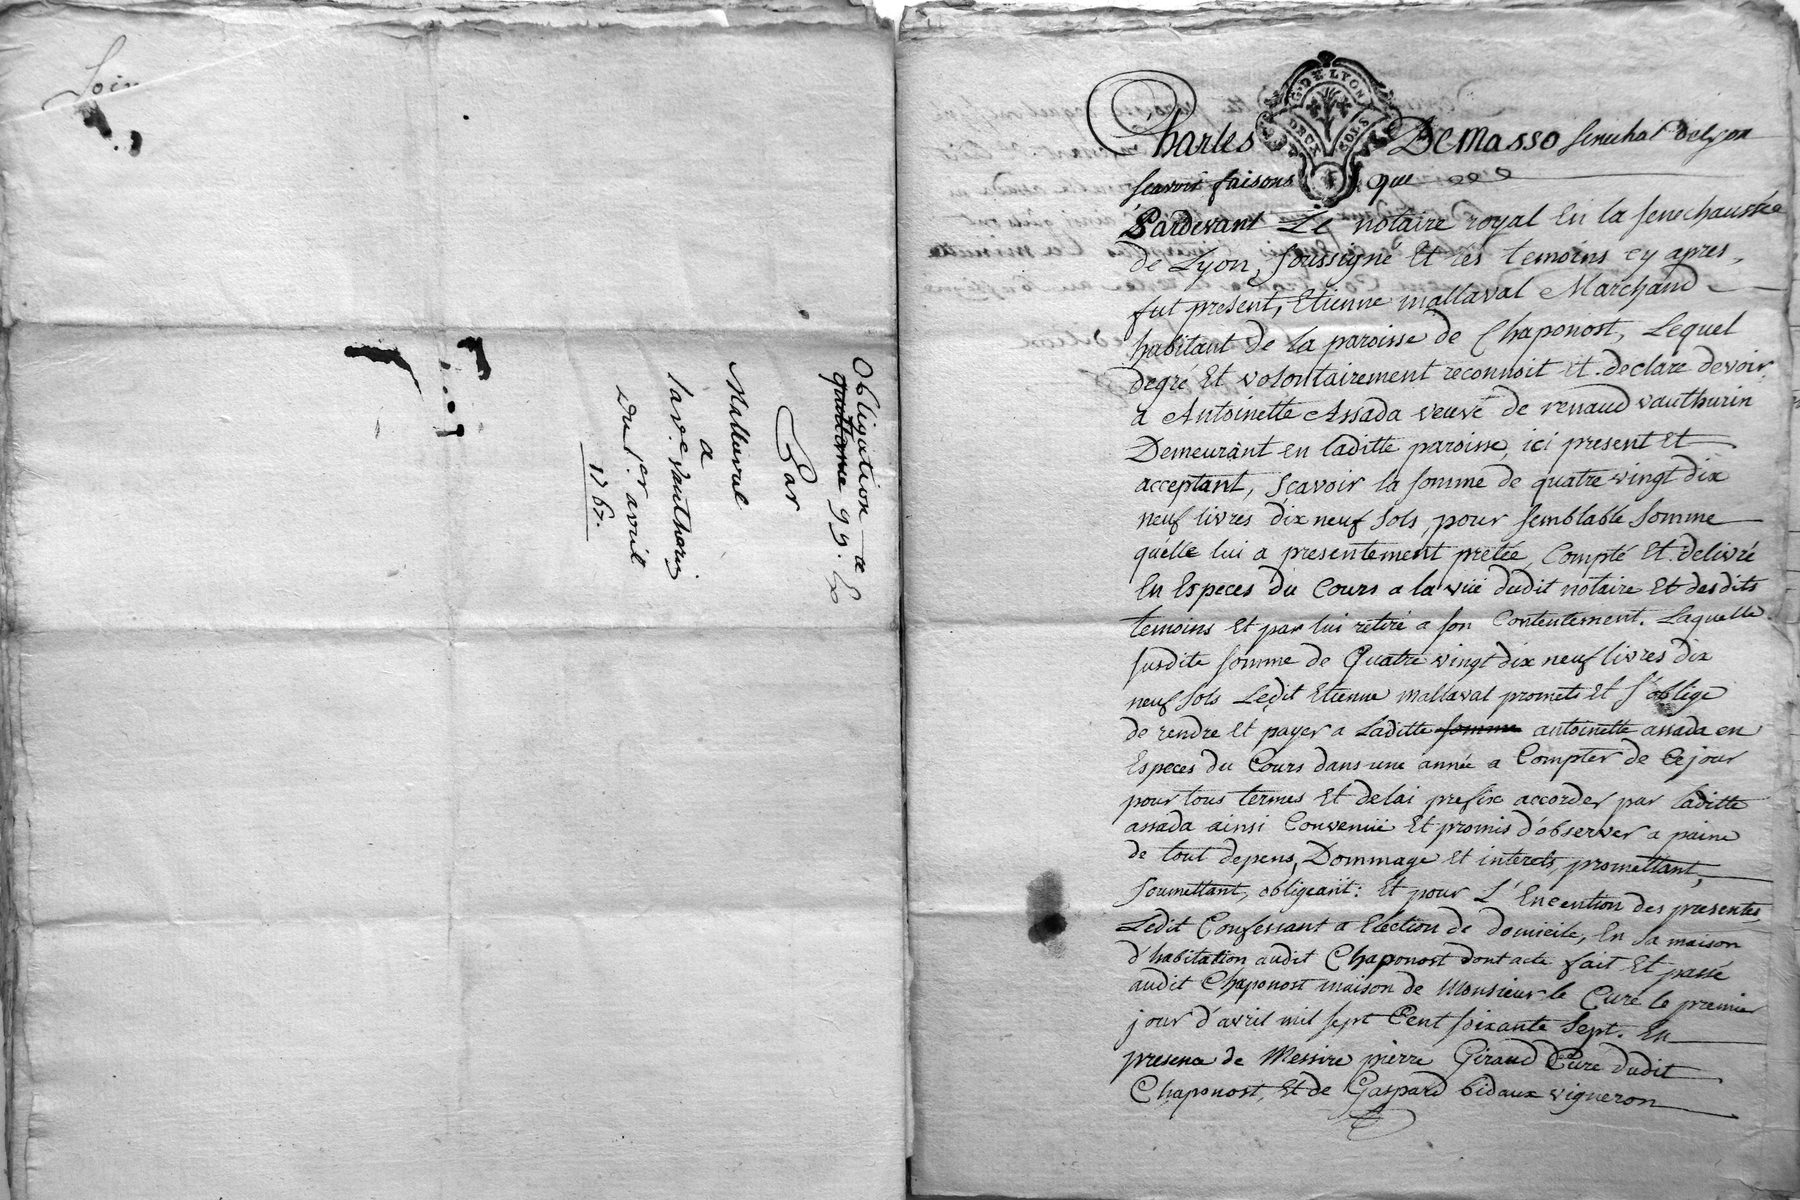 Soin
Obligation de
quittance 99. L.
Par
Mallieval
a
la ve. Vautharin
Du 1er. avril
1767.
G. DE LYON
DEUX SOLS
Charles Demasso senechal de Lyon
scavoir faisons que
Pardevant Le notaire royal En la senechaussée
de Lyon, soussigné Et les temoins cy apres,
fut present, Etienne mallaval Marchand
habitant de la paroisse de Chaponost, Lequel
degré Et volontairement reconnoit Et declare devoir
a Antoinette Assada veuve de renaud vauthurin
Demeurant en laditte paroisse, ici present Et
acceptant, sçavoir la somme de quatre vingt dix
neuf livres dix neuf sols, pour semblable somme
quelle lui a presentement pretée, Compté Et delivré
En Especes du Cours a la vüe dudit notaire Et desdits
temoins Et par lui retiré a son Contentement. Laquelle
susdite somme de Quatre vingt dix neuf livres dix
neuf sols Ledit Etienne mallaval promets Et s'oblige
de rendre Et payer a Laditte somme antoinette assada en
Especes du Cours dans une année a Compter de Ce jour
pour tous termes Et delai prefix accorder par laditte
assada ainsi Convenüe Et promis d'observer a paine
de tout depens, Dommage Et interets, promettant,
soumettant, obligeant: Et pour L'Execution des presentes
Ledit Confessant a Election de domicile, En sa maison
d'habitation audit Chaponost dont acte fait Et passé
audit Chaponost maison de Monsieur le Curé le premier
jour d'avril mil sept Cent soixante sept. En
presence de Messire pierre Giraud Curé dudit
Chaponost, Et de Gaspard bidaux vigneron